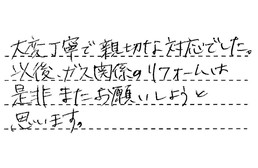 大変丁寧で親切な対応でした。
以後、ガス関係のリフォームは
是非またお願いしようと
思います。